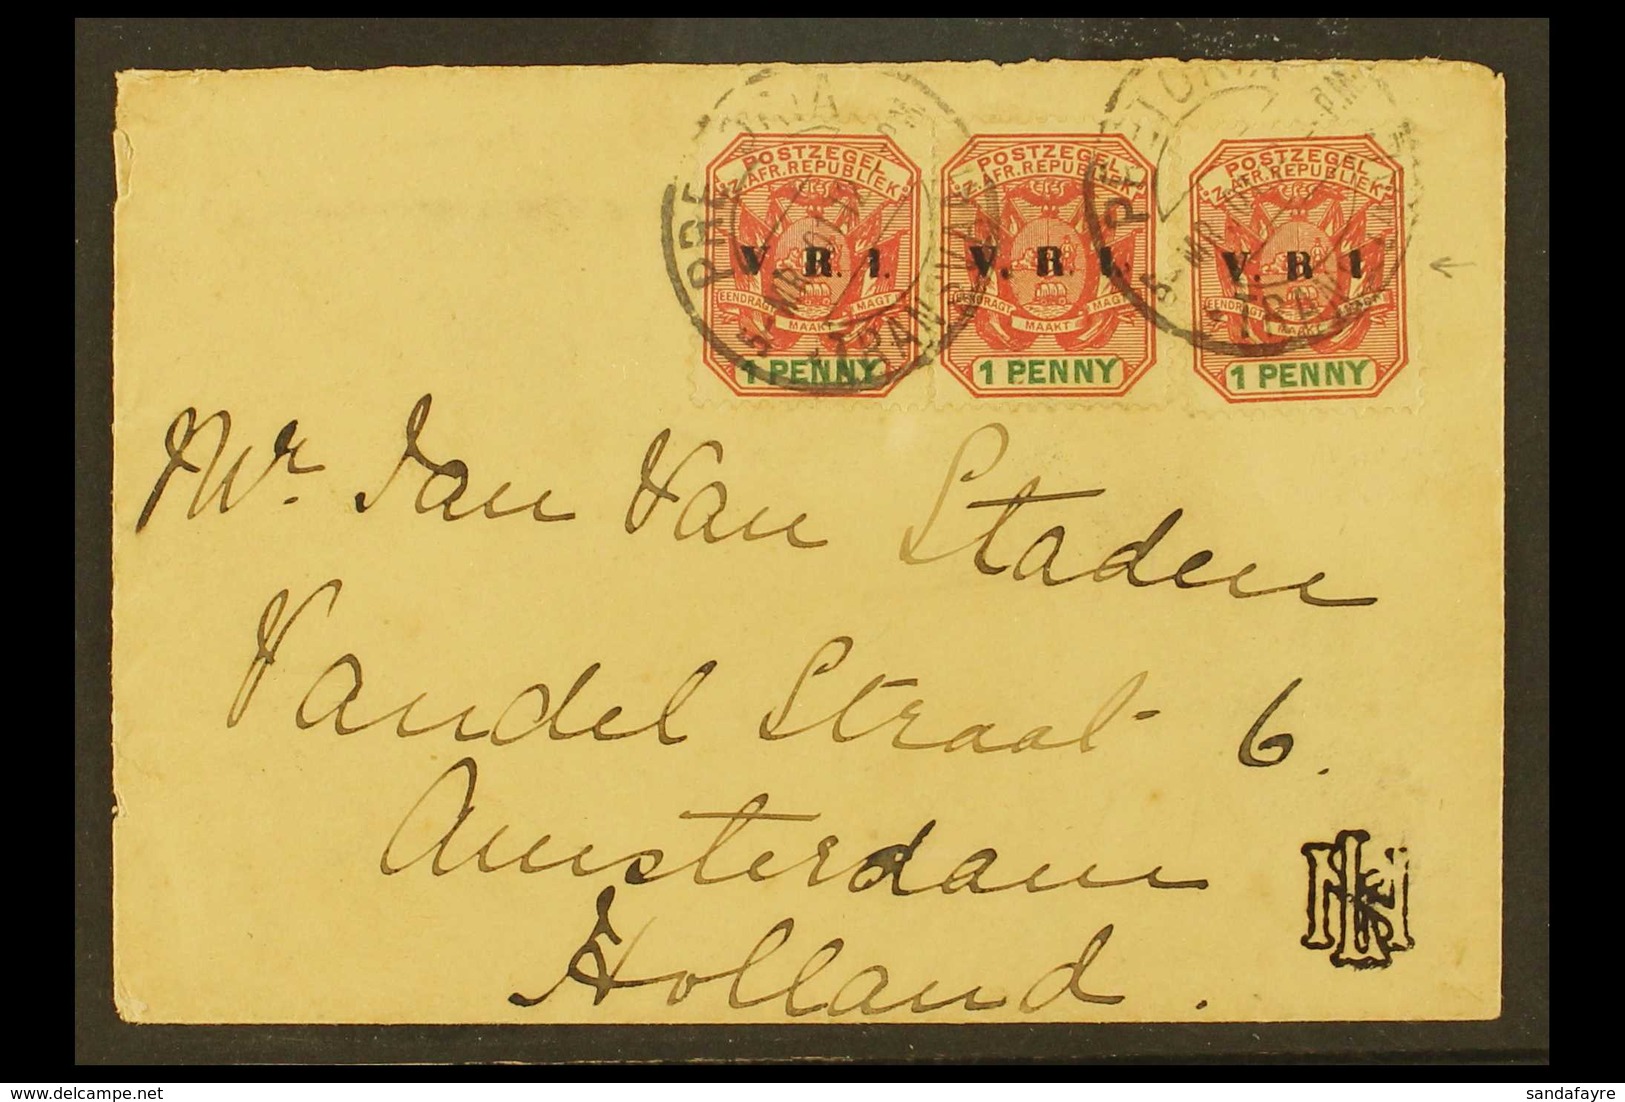 PRETORIA
TRANSVAAL
PRETORIA
POSTZEGEL
Z. AFR. REPUBLIEK
V. R. I.
EENDRAGT MAAKT MAGT
1 PENNY
POSTZEGEL
Z. AFR. REPUBLIEK
V. R. I.
EENDRAGT MAAKT MAGT
1 PENNY
POSTZEGEL
Z. AFR. REPUBLIEK
V. R I
EENDRAGT MAAKT MAGT
1 PENNY
Mr. Jan Van Staden
Vandel Straat 6.
Amsterdam
Holland.
sandafayre